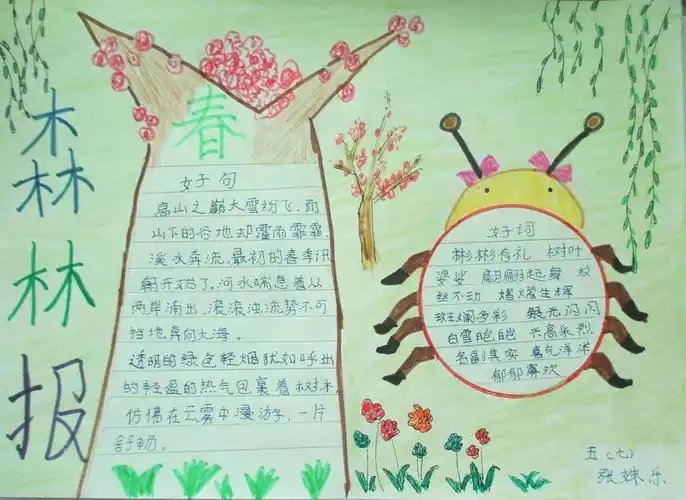 森林报
春
好句
高山之巅大雪纷飞,而
山下的谷地却灌雨霏霏,
溪水奔流,最初的春季汛
期开始了,河水喘息着从
两岸涌出,滚滚浊流势不可
挡地奔向大海。
透明的绿色轻烟犹如呼出
的轻盈的热气包裹着树木,
仿佛在云雾中漫游,一片
舒畅。
好词
彬彬有礼 树叶
婆娑 翩翩起舞 纹
丝不动 熠熠生辉
斑斓多彩 银光闪闪
白雪皑皑 兴高采烈
名副其实 喜气洋洋
郁郁寡欢
五(七)
张姝乐